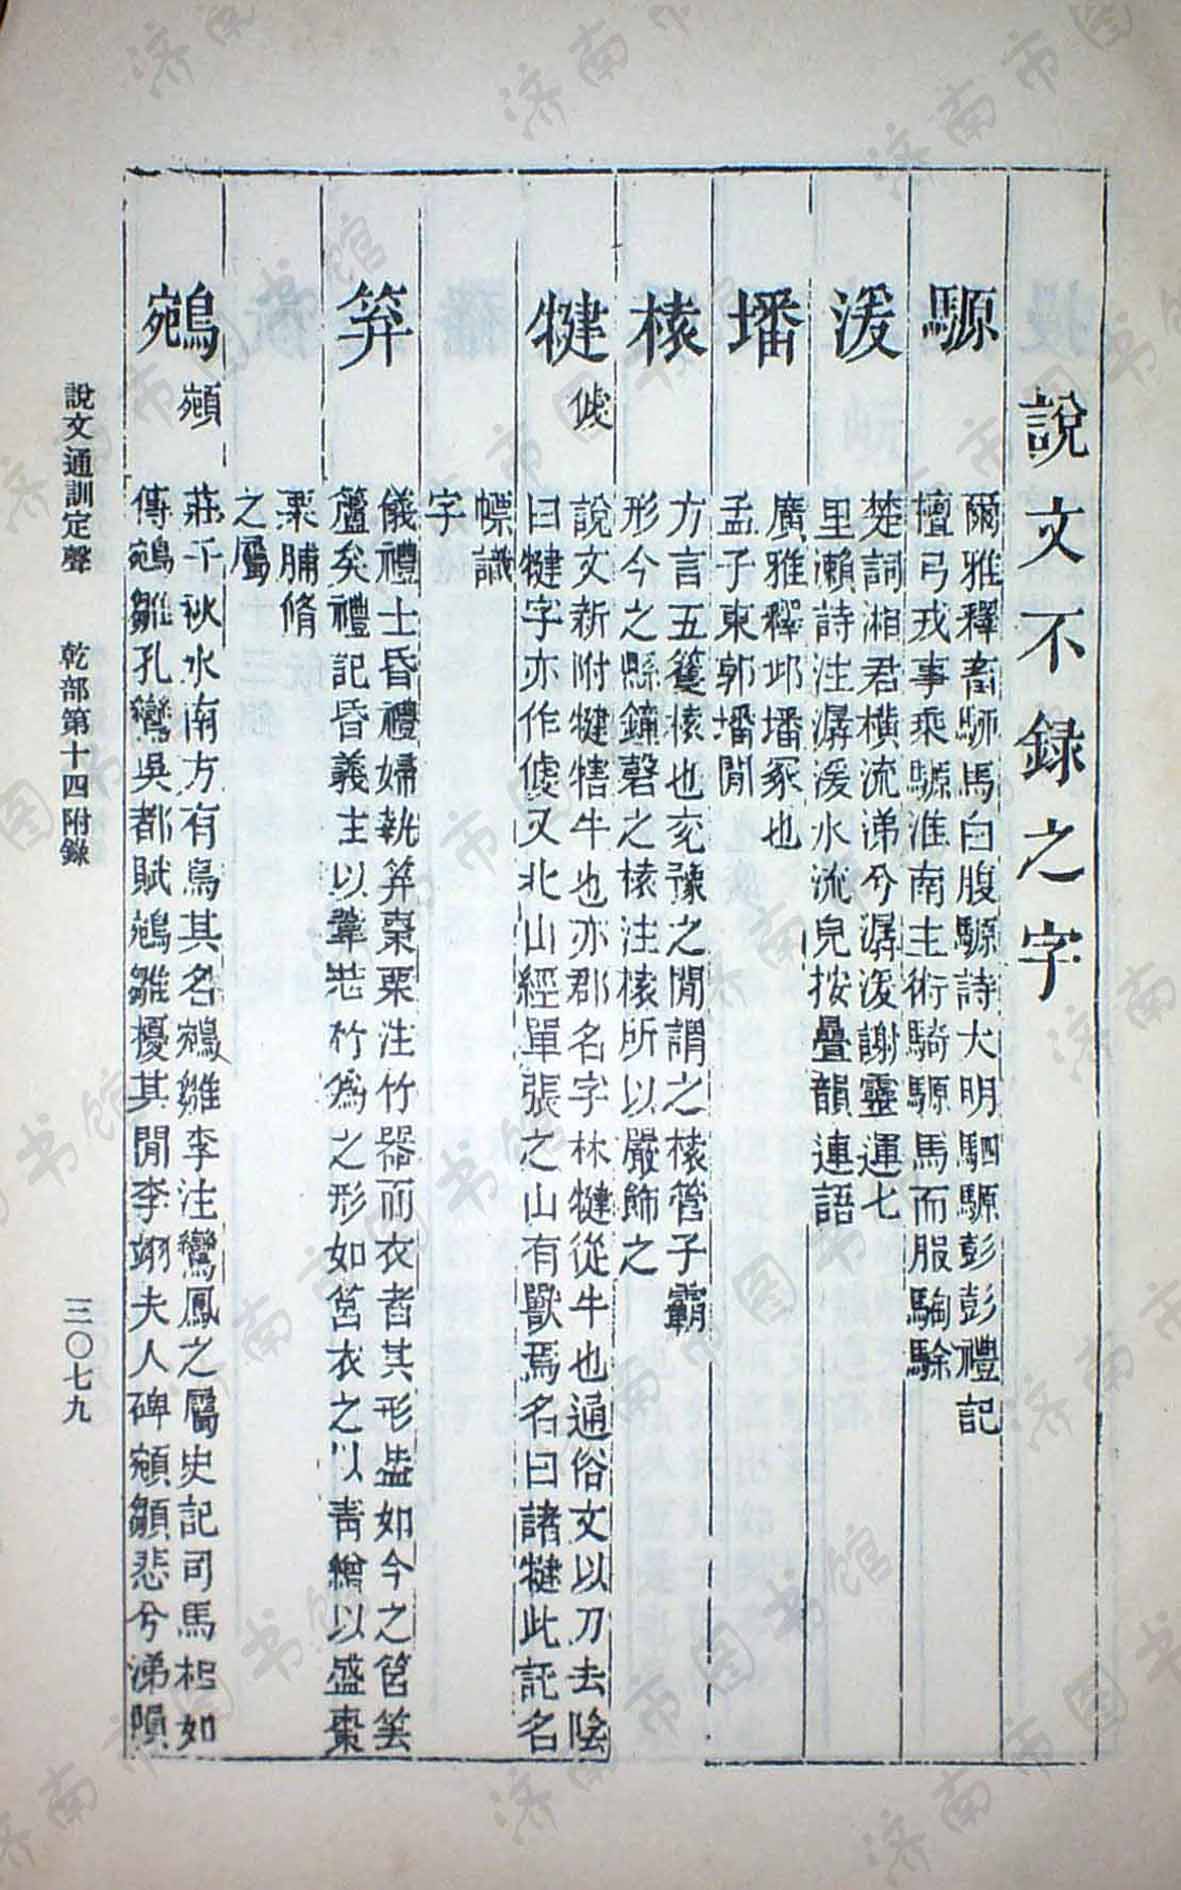 說文不録之字
騵
爾雅釋畜駵馬白腹騵詩大明駟騵彭彭禮記
檀弓戎事乘騵淮南主術騎騵馬而服騊駼
湲
楚詞湘君橫流涕兮潺湲謝靈運七
里瀨詩注潺湲水流皃按疊韻連語
墦
廣雅釋邱墦冢也
孟子東郭墦閒
榬
方言五籆榬也兖豫之閒謂之榬管子霸
形今之縣鐘磬之榬注榬所以嚴飾之
犍 㹇
說文新附犍犗牛也亦郡名字林犍從牛也通俗文以刀去陰
曰犍字亦作㹇又北山經單張之山有獸焉名曰諸犍此託名
幖識
字
笲
儀禮士昏禮婦執笲棗栗注竹器而衣者其形蓋如今之筥䇠
簏矣禮記昏義主以葦𥬔竹爲之形如筥衣之以青繒以盛棗
栗脯脩
之屬
鵷 䫉
莊子秋水南方有鳥其名鵷雛李注鸞鳳之屬史記司馬相如
傳鵷鶵孔鸞吳都賦鵷雛擾其閒李翊夫人碑䫉顀悲兮涕隕
說文通訓定聲 乾部第十四附錄 三〇七九
济南市图书馆